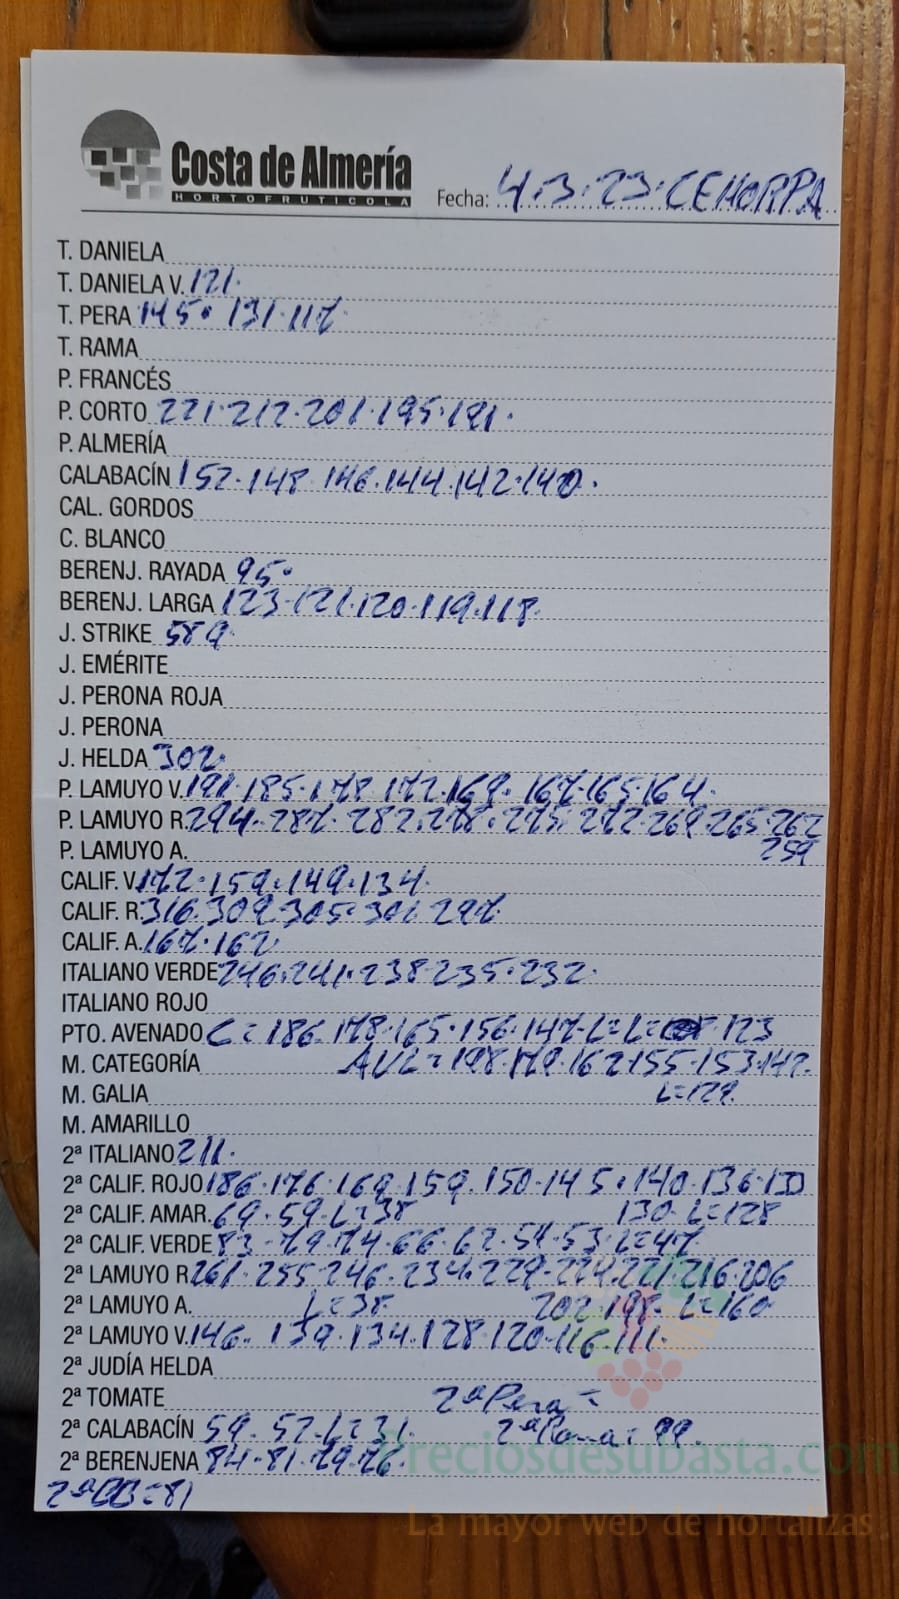 Costa de Almería
HORTOFRUTICOLA
Fecha: 4.3.23.CEHORPA
T. DANIELA
T. DANIELA V. 121.
T. PERA 145. 131.117
T. RAMA
P. FRANCÉS
P. CORTO 221.212.201.195.191.
P. ALMERÍA
CALABACÍN 152.148.146.144.142.140.
CAL. GORDOS
C. BLANCO
BERENJ. RAYADA 95.
BERENJ. LARGA 123.121.120.119.118.
J. STRIKE 589.
J. EMÉRITE
J. PERONA ROJA
J. PERONA
J. HELDA 302.
P. LAMUYO V. 191.185.178.172.169.167.165.164.
P. LAMUYO R. 294.287.282.278.275.272.269.265.262
259
P. LAMUYO A.
CALIF. V. 172.159.149.134.
CALIF. R. 316.309.305.301.297.
CALIF. A. 167.162
ITALIANO VERDE 246.241.238.235.232.
ITALIANO ROJO
PTO. AVENADO C=186.178.165.156.147.L=L= 123
M. CATEGORÍA AVL=198.179.162.155.153.147.
M. GALIA L=129.
M. AMARILLO
2ª ITALIANO 211.
2ª CALIF. ROJO 186.176.169.159.150.145.140.136.130
2ª CALIF. AMAR. 69.59.L=38 130.L=128
2ª CALIF. VERDE 83.79.74.66.62.54.53.L=47
2ª LAMUYO R. 261.255.246.234.229.224.221.216.206
2ª LAMUYO A. L=38. 202.198.L=160.
2ª LAMUYO V. 146.139.134.128.120.116.111.
2ª JUDÍA HELDA
2ª TOMATE 2ª Pera=
2ª CALABACÍN 59.52.L=31. 2ª Rama=99.
2ª BERENJENA 84.81.79.76.
2ª BB=81
preciosdesubasta.com
La mayor web de hortalizas